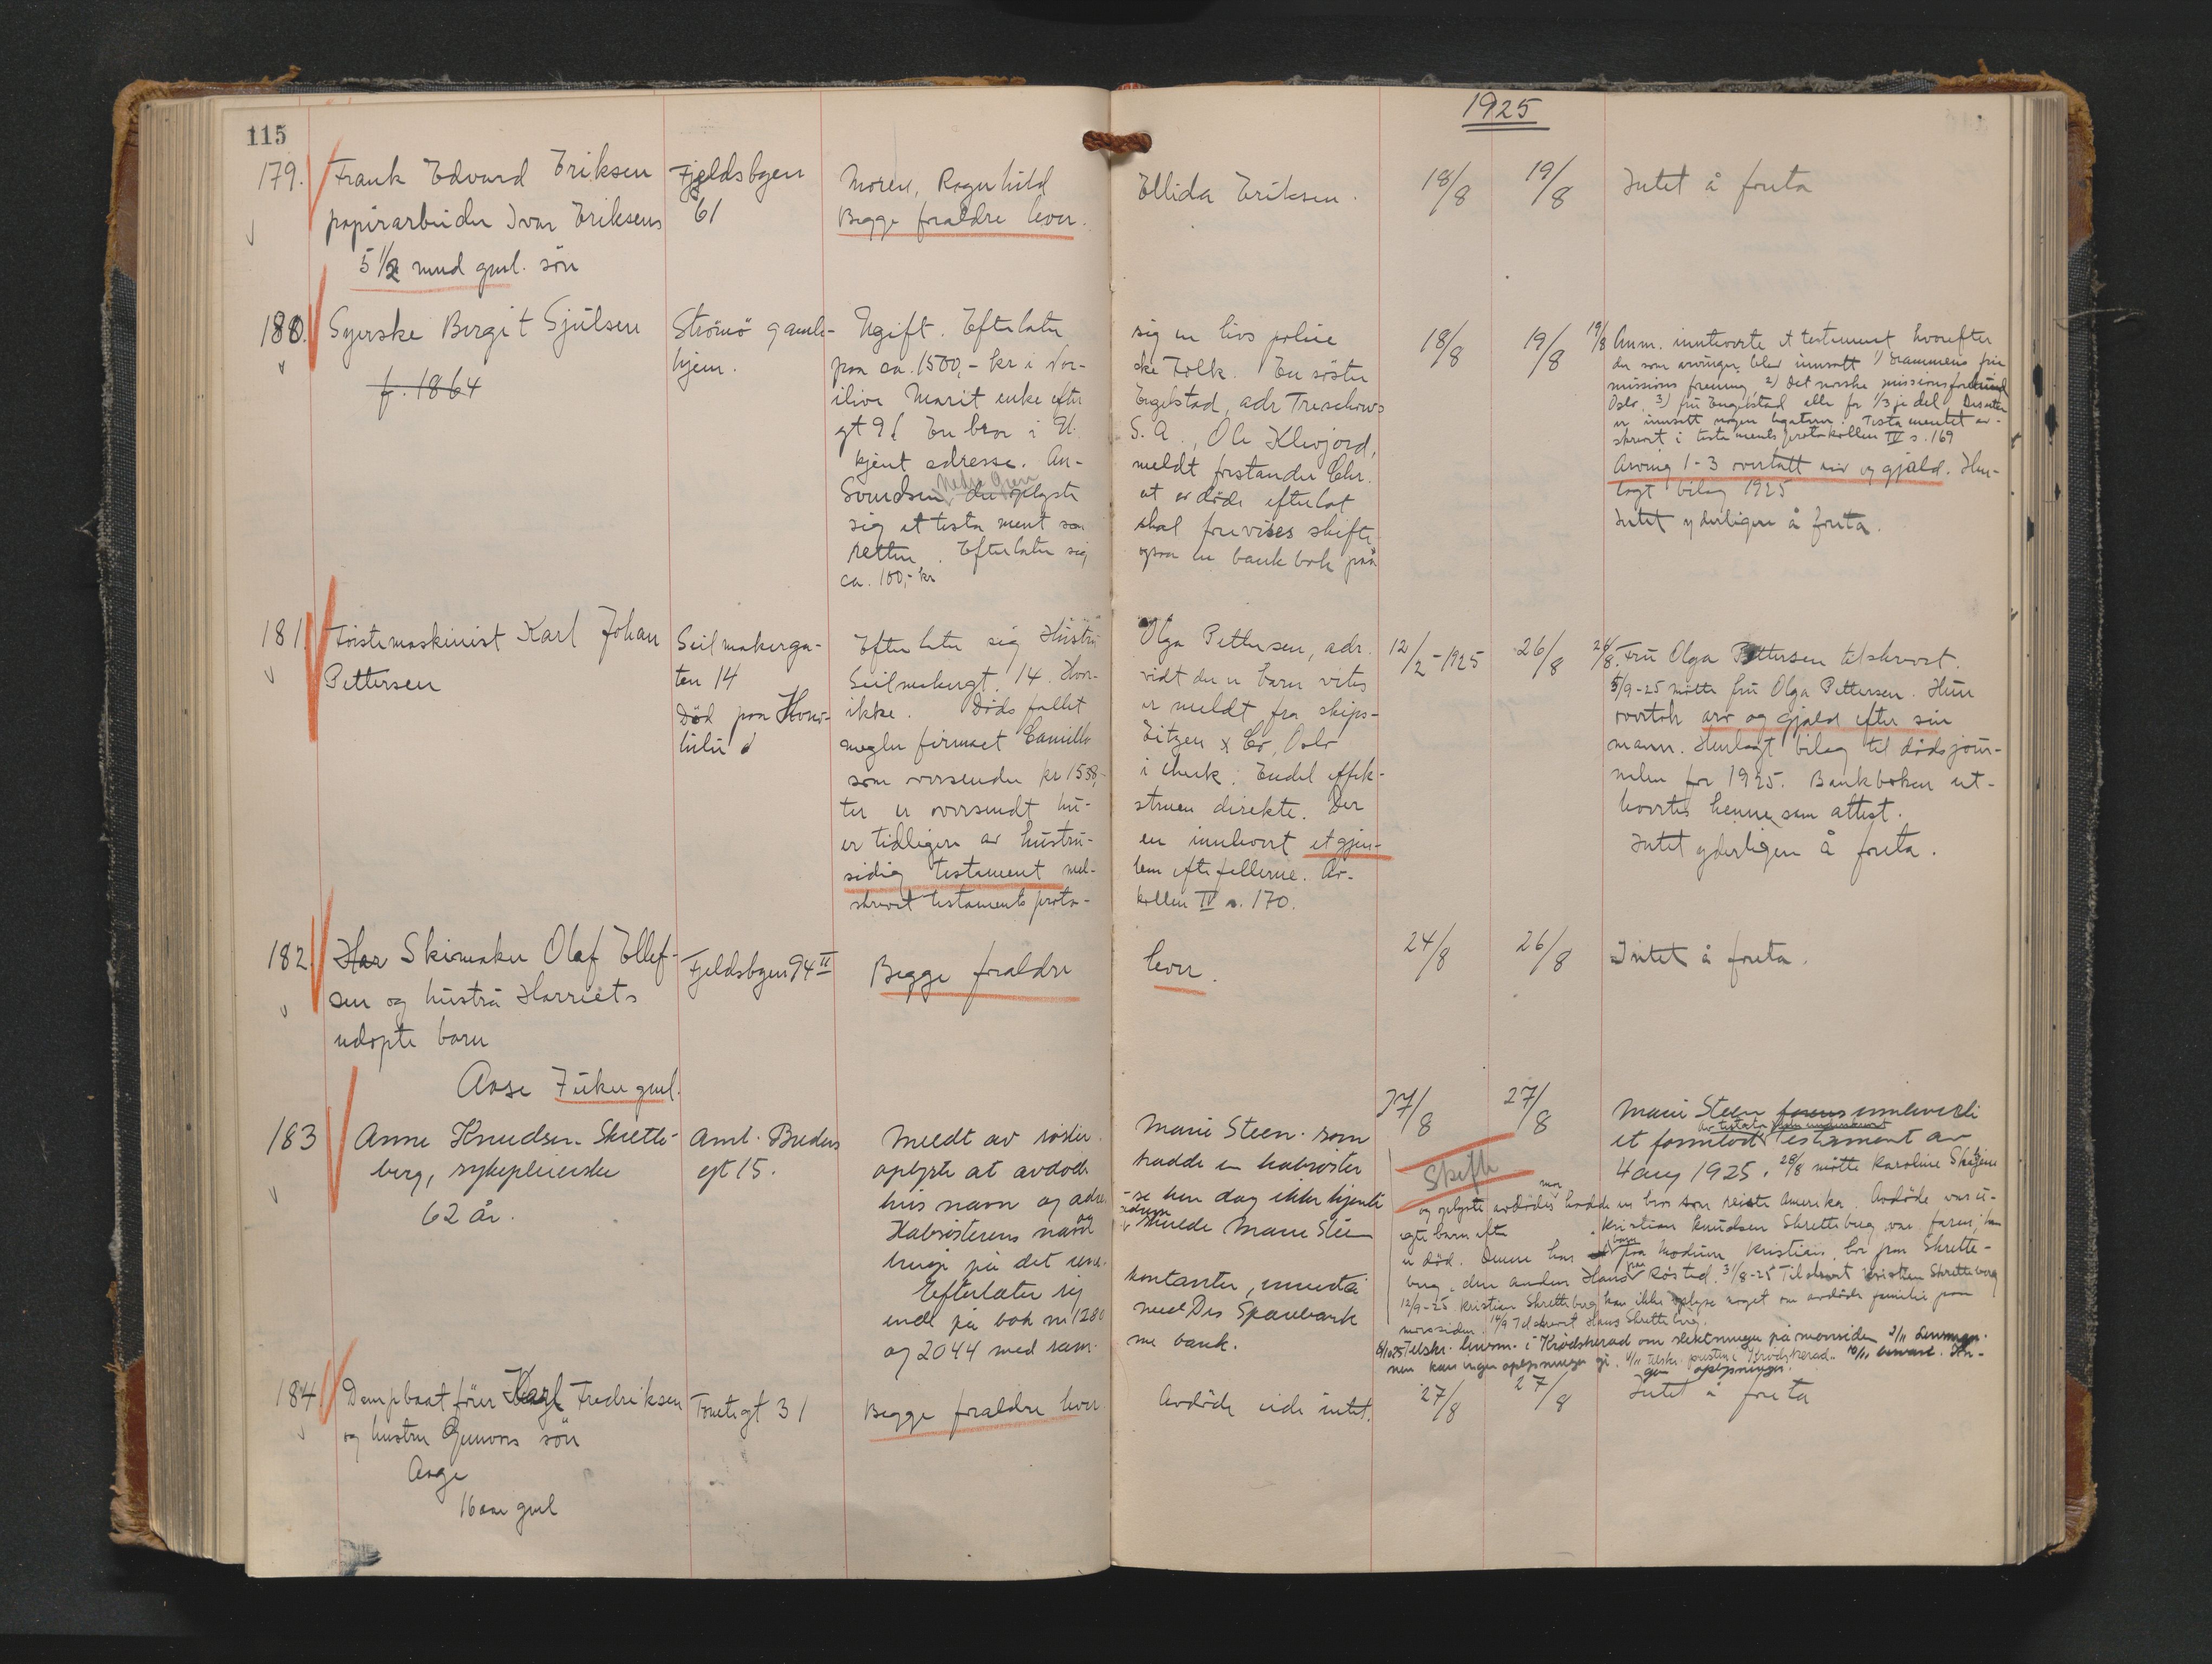 1925
115
179. Frank Edvard Eriksen
papirarbeider Ivar Eriksens
5 1/2 mnd gml. sön
Fjeldsbyen
61
Moren, Ragnhild
Begge foraldre lever.
Ellida Eriksen.
18/8 19/8 Intet å foreta
180. Syerske Birgit Gjulsen
f. 1864
Strömsö gamle-
hjem.
Ugift. Efterlater
paa ca. 1500,- kr i Nor-
ilive Marit enke efter
gt 9 En bror i U.
kjent adresse. An-
Svendsen, der oplyste
sig et testament som
retten. Efterlater sig
ca. 100,- kr
sig en livs polise
ske Folk. En söster
Engelstad, adr Treschows
S. A., Ole Klevjord,
meldt forstander Chr.
at avdöde efterlot
skal forevises skifte
ogsaa en bankbok paa
18/8 19/8
19/8 Anm. innleverte et testament hvorefter
der som arvinger blev innsatt 1) Drammens frie
missions forening, 2) Det norske missionsforbund
Oslo, 3) fru Engelstad eller for 1/3 je del. Desuten
er innsatt nogen legatarer. Testamentet av-
skrevet i testamentsprotokollen IV s. 169
Arving 1-3 overtatt arv og gjæld. Hen-
lagt bilag 1925
Intet yderligere å foreta.
181 Förstemaskinist Karl Johan
Pettersen
Seilmakerga-
ten 14
Död paa Hono-
lulu
Efterlater sig Hustru
Seilmakergt. 14. Hvor-
ikke. Dödsfallet
megler firmaet Camillo
som oversender kr 1538,-
ter er oversendt hu-
er tidligere av hustru-
sidig testament mel-
skrevet testaments proto-
Olga Pettersen, adr.
vidt der er barn vites
er meldt fra skips-
Eitzen & Co, Oslo
i check. Endel effek-
struen direkte. Der
en innlevert et gjen-
lem eftefellerne. Av-
kollen IV s. 170.
12/2-1925 26/8
26/8. Fru Olga Pettersen tilskrevet.
5/9-25 mötte fru Olga Pettersen. Hun
overtok arv og gjæld efter sin
mann. Henlagt bilag til dödsjour-
nalen for 1925. Bankboken ut-
levertes henne som attest.
Intet yderligere å foreta.
182. Har Skomaker Olaf Ellef-
sen og hustru Harriets
udöpte barn
Aase 7 uker gml.
Fjeldsbyen 94 II
Begge foraldre
lever.
24/8 26/8 Intet å foreta.
183 Anne Knudsen Skrette-
berg, sykepleierske
62 år.
Aml. Breders
gt 15.
Meldt av söster
oplyste at avdöde
hvis navn og adres
Halvsösterens navn og
bringe på det rene.
Efterlater sig
endel på bok nr 1280
og 2044 med sam-
Marie Steen. som
hadde en halvsöster
-se hun dag ikke kjente
adresse skulde Marie Steen
kontanter, innestå
ned Drs Sparebank
me bank.
27/8 27/8
Skifte
Marie Steen innleverte
et formlöst Testament av
4 aug 1925. 28/8 mötte Karoline
og oplyste avdödes mor hadde en bror som reiste Amerika. Avdöde var u-
egte barn efter Kristian Knudsen Skretteberg var faren; han
er död. Denne har barn fra Modum, Kristian bor paa Skrette-
berg, den anden Hans Röstad. 31/8-25 Tilskrevet Kristian Skretteberg
12/9-25 Kristian Skretteberg kan ikke oplyse noget om avdödes familie paa
morssiden. 14/9 Tilskrevet Hans Skretteberg.
Tilskr. lensm. i Krödsherad om slektninger på morssiden 2/11 Lensman-
nen kan ingen oplysninger gi. 4/11 tilskr. presten i Krödsherad. 10/11 besvart. In-
gen oplysninger.
184 Dampbaat förer Karl Fredriksen
og hustru Gunvors sön
Aage
16 aar gml
Tomtegt 31
Begge foraldre lever.
Avdöde eide intet.
27/8 27/8 Intet å foreta